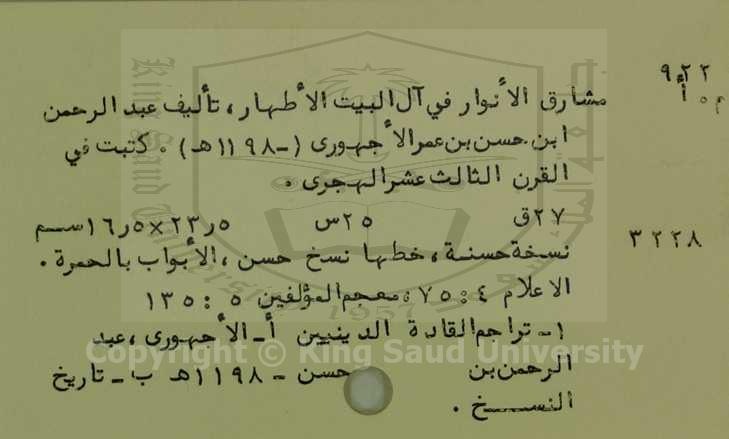 ٩٢٢
م ٠ أ
مشارق الأنوار في آل البيت الأطهار ، تأليف عبد الرحمن
ابن حسن بن عمر الأجهورى ( - ١١٩٨هـ ) ٠ كتبت في
القرن الثالث عشر الهجرى ٠
٢٧ق ٢٥س ٢٣٫٥×١٦٫٥سم
٣٢٢٨
نسخة حسنة ، خطها نسخ حسن ، الأبواب بالحمرة ٠
الاعلام ٤ : ٧٥ ، معجم المؤلفين ٥ : ١٣٥
١- تراجم القادة الدينيين أ - الأجهورى ، عبد
الرحمن بن حسن - ١١٩٨هـ ب - تاريخ
النسخ ٠
Copyright © King Saud University
King Saud University
1957